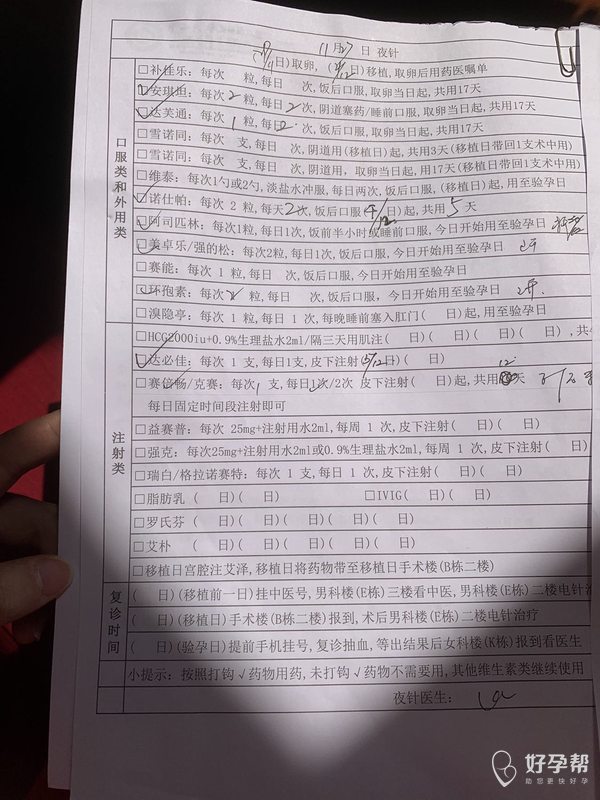 11月27日 夜针
(29/11日)取卵, ( /12日)移植, 取卵后用药医嘱单
口服类和外用类
□补佳乐: 每次 粒, 每日 次, 饭后口服, 取卵当日起, 共用17天
□安琪坦: 每次 2 粒, 每日 2 次, 阴道塞药/睡前口服, 取卵当日起, 共用17天
□达芙通: 每次 1 粒, 每日 2 次, 饭后口服, 取卵当日起, 共用17天
□雪诺同: 每次 支, 每日 次, 阴道用(移植日)起, 共用3天(移植日带回1支术中用)
□雪诺同: 每次 支, 每日 次, 阴道用, 取卵当日起, 用17天(移植日带回1支术中用)
□维泰: 每次1勺或2勺, 淡盐水冲服, 每日两次, 饭后口服, (移植日)起, 用至验孕日
□诺仕帕: 每次 2 粒, 每天2次, 饭后口服(4/12日)起, 共用 5 天
□阿司匹林: 每次1粒, 每日1次, 饭前半小时或睡前口服, 今日开始用至验孕日
□美卓乐/强的松: 每次2粒, 每日1次, 饭后口服, 今日开始用至验孕日
□赛能: 每次 1 粒, 每日 次, 饭后口服, 今日开始用至验孕日
□环孢素: 每次 粒, 每日 次, 饭后口服, 今日开始用至验孕日
□溴隐亭: 每次 1 粒, 每日 1 次, 每晚睡前塞入肛门( 日)起, 用至验孕日
注射类
□HCG2000iu+0.9%生理盐水2ml/隔三天用肌注( 日)( 日)( 日)( 日), 共
□达必佳: 每次 1 支, 每日1支, 皮下注射( /12日)( 日)
□赛倍畅/克赛: 每次1支, 每日1次/2次 皮下注射( 日)起, 共用 12 天
每日固定时间段注射即可
□益赛普: 每次 25mg+注射用水2ml, 每周 1 次, 皮下注射( 日)( 日)
□强克: 每次25mg+注射用水2ml或0.9%生理盐水2ml, 每周 1 次, 皮下注射( 日)
□瑞白/格拉诺赛特: 每次 1 支, 每日 1 次, 皮下注射( 日)( 日)( 日)
□脂肪乳 ( 日)( 日) □IVIG( 日)( 日)
□罗氏芬 ( 日)( 日)( 日)( 日)( 日)
□艾朴 ( 日)( 日)( 日)( 日)( 日)
□移植日宫腔注艾泽, 移植日将药物带至移植日手术楼(B栋二楼)
复诊时间
( 日)(移植前一日)挂中医号, 男科楼(E栋)三楼看中医, 男科楼(E栋)二楼电针
( 日)(移植日)手术楼(B栋二楼)报到, 术后男科楼(E栋)二楼电针治疗
( 日)(验孕日)提前手机挂号, 复诊抽血, 等出结果后女科楼(K栋)报到看医生
小提示: 按照打钩√药物用药, 未打钩√药物不需要用, 其他维生素类继续使用
夜针医生:
好孕帮
助您更快好孕